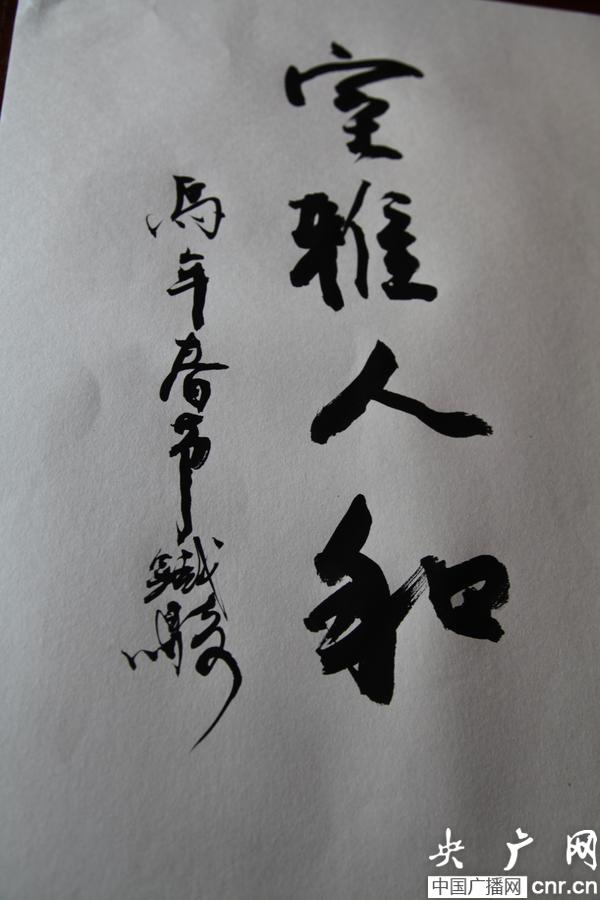 室雅人和
馬年春节
央广网
中国广播网 cnr.cn